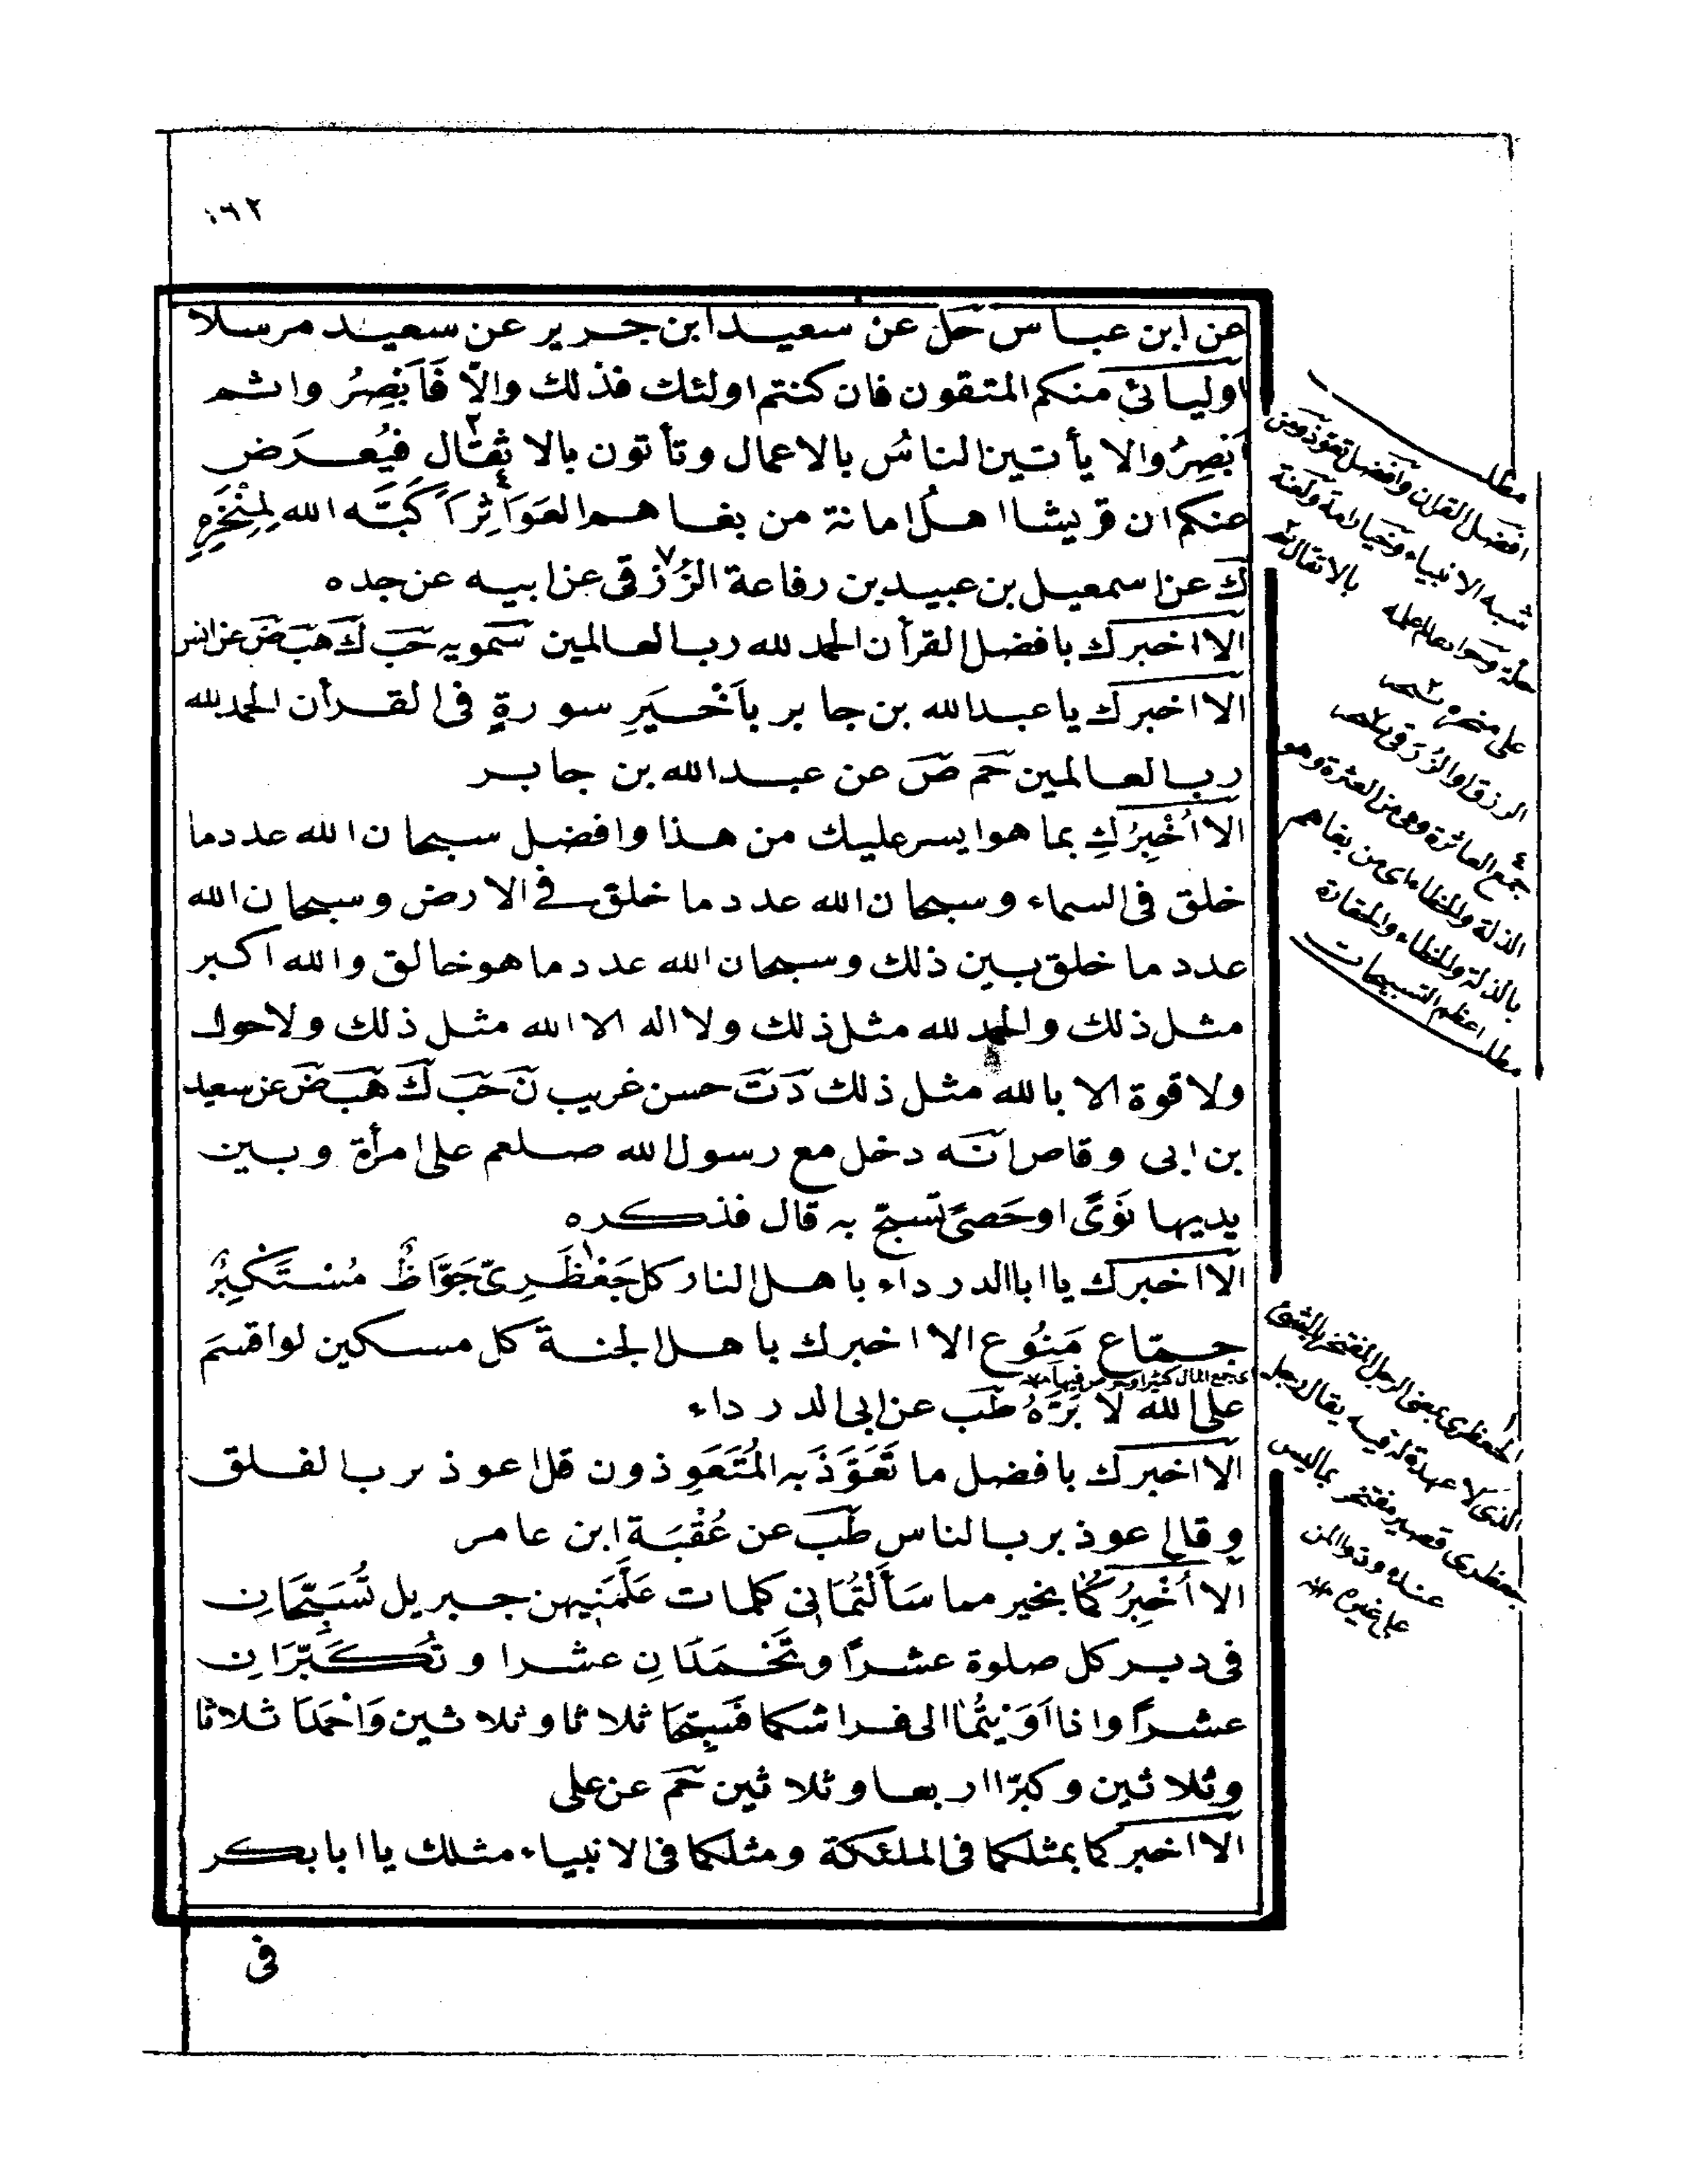 ١٦٢
عن ابن عباس حل عن سعيد ابن جرير عن سعيد مرسلا
اوليائى منكم المتقون فان كنتم اولئك فذلك والّا فَاَبْصِرُ واثم
اَبْصِرُ والا يأتين الناسُ بالاعمال وتأتون بالاثقال فيُعرَض
عنكم ان قريشا اهلُ امانة من بغاهم العَوَاثِرَ اَكَبَّه الله لِمِنْخَرِهِ
ك عن اسمعيل بن عبيد بن رفاعة الزُرَقى عن ابيه عن جده
الا اخبرك بافضل القرأن الحمد لله رب العالمين سمويه حب ك هب ض عن انس
الا اخبرك يا عبد الله بن جابر بِاَخْيَرِ سورةٍ فى القرأن الحمد لله
رب العالمين حم ص عن عبد الله بن جابر
الا اُخْبِرُكِ بما هو ايسر عليك من هذا وافضل سبحان الله عدد ما
خلق فى السماء وسبحان الله عدد ما خلق فى الارض وسبحان الله
عدد ما خلق بين ذلك وسبحان الله عدد ما هو خالق والله اكبر
مثل ذلك والحمد لله مثل ذلك ولا اله الا الله مثل ذلك ولا حول
ولا قوة الا بالله مثل ذلك د ت حسن غريب ن حب ك هب ض عن سعيد
بن ابى وقاص انّه دخل مع رسول الله صلعم على امرأة وبين
يديها نَوًى او حَصًى تسبّح به قال فذكره
الا اخبرك يا ابا الدرداء باهل النار كل جَعْظَرِىّ جَوَّاظٌ مُسْتَكْبِرٌ
جمّاع مَنُوع الا اخبرك باهل الجنة كل مسكين لو اقسم
على الله لَا بَرَّهُ طب عن ابى الدرداء
الا اخبرك بافضل ما تَعَوَّذَ به المُتَعَوِذون قل اعوذ برب الفلق
وقل اعوذ برب الناس طب عن عُقْبَة ابن عامر
الا اُخْبِرُكُمَا بخير مما سَأَلْتُمَانِى كلمات عَلَّمَنِيهن جبريل تُسَبِّحَانِ
فى دبر كل صلوة عشرًا وتَحْمَدَانِ عشرا وتُكَبِّرَانِ
عشرًا واذا اَوَيْتُمَا الى فراشكما فَسَبِّحَا ثلاثا وثلاثين وَاحْمَدَا ثلاثا
وثلاثين وكبّرا اربعا وثلاثين حم عن على
الا اخبركما بمثلكما فى الملئكة ومثلكما فى الانبياء مثلك يا ابا بكر
فى
مطلب
افضل القران وافضل تعوذ ومن
شبه الانبياء وخيار امة ولعنة
بالاثقال
على منخره
الرزقا والزُرَقى
جمع العاثرة وهى من العثرة وهو
الذلة والخطاء اى من بغاهم
بالذلة والخطاء
مطلب اعظم التسبيحات
الجعظرى بمعنى الرجل المفتخر بالشئ
الذى لا عهدة له فيه يقال رجل
جعظرى قصير مفتخر بما ليس
عنده وذو المن
على غيره